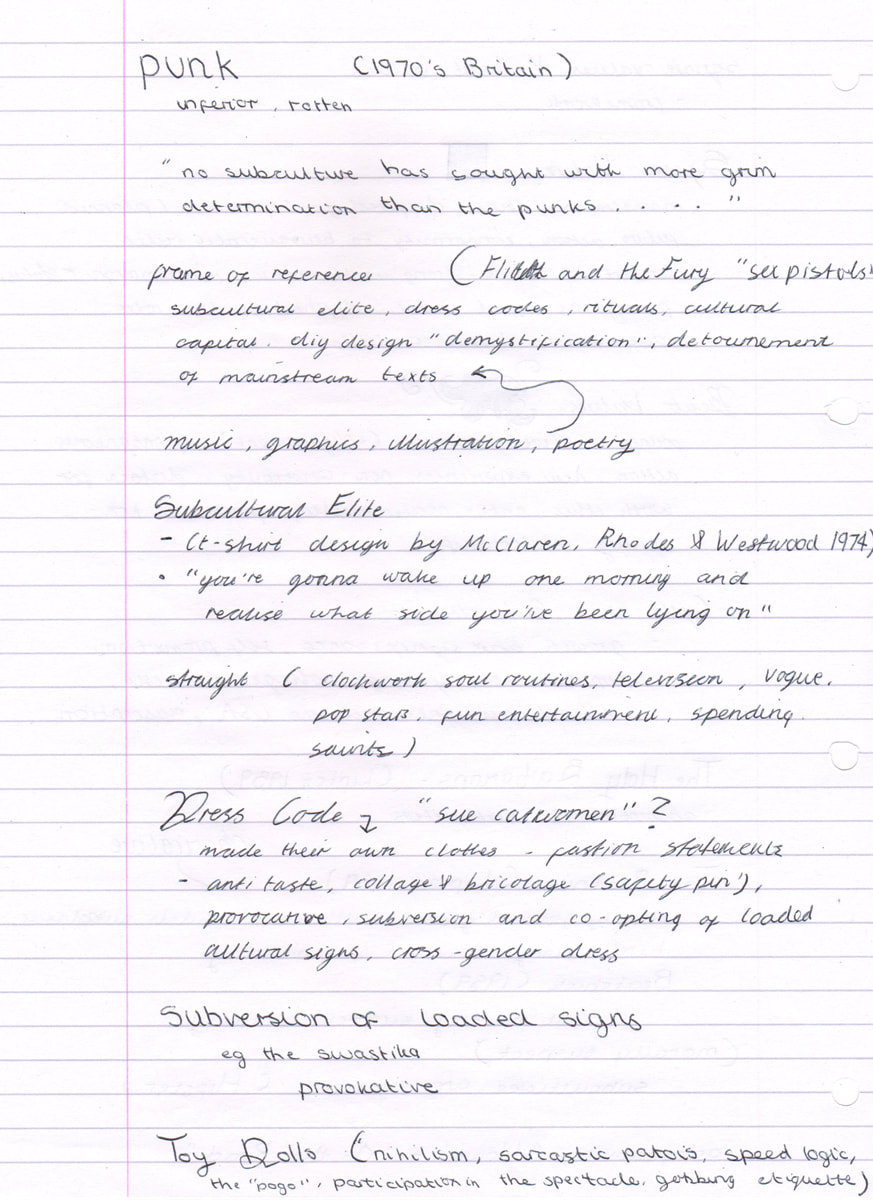 punk (1970's Britain)
inferior, rotten
"no subculture has sought with more grim
determination than the punks . . . . "
frame of reference (Flith and the Fury "sex pistols"
subcultural elite, dress codes, rituals, cultural
capital. diy design "demystification", detournement
of mainstream texts
music, graphics, illustration, poetry
Subcultural Elite
- (t-shirt design by McClaren, Rhodes & Westwood 1974)
• "you're gonna wake up one morning and
realise what side you've been lying on"
straight ( clockwork soul routines, television, Vogue,
pop stars, fun entertainment, spending
)
Dress Code "sue catwomen" ?
made their own clothes - fastion statements
- anti taste, collage & bricolage (safety pin'),
provocative, subversion and co-opting of loaded
cultural signs, cross-gender dress
Subversion of loaded signs
eg the swastika
provokative
Toy Dolls (nihilism, sarcastic patois, speed logic,
the "pogo", participation in the spectacle, gobbing etiquette)